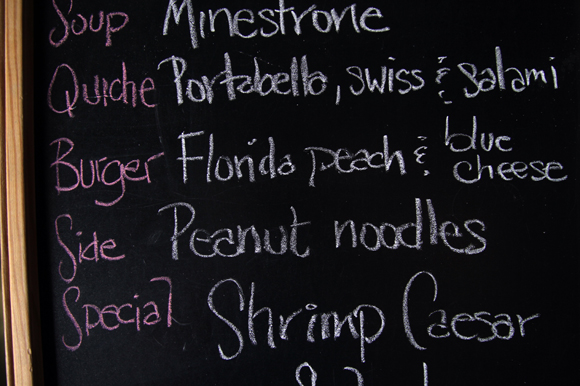 Soup Minestrone
Quiche Portabello, swiss & salami
Burger Florida peach & blue cheese
Side Peanut noodles
Special Shrimp Caesar